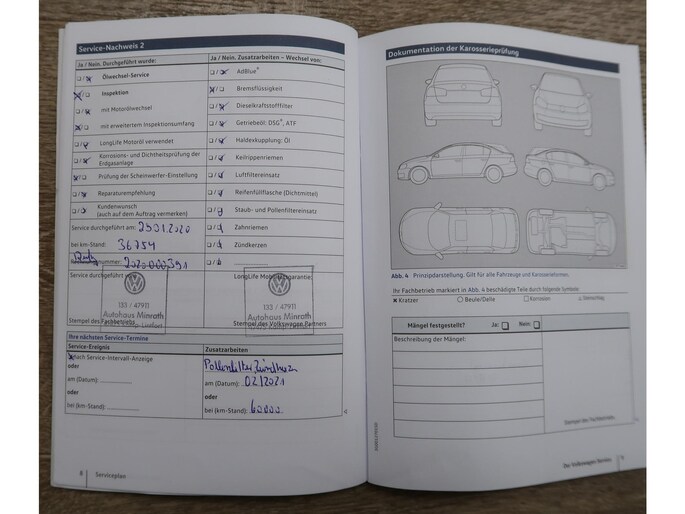 Service-Nachweis 2
Ja / Nein. Durchgeführt wurde:
Ölwechsel-Service
Inspektion
mit Motorölwechsel
mit erweitertem Inspektionsumfang
LongLife Motoröl verwendet
Korrosions- und Dichtheitsprüfung der
Erdgasanlage
Prüfung der Scheinwerfer-Einstellung
Reparaturempfehlung
Kundenwunsch
(auch auf dem Auftrag vermerken)
Service durchgeführt am: 23.01.2020
bei km-Stand: 36754
nummer: 2020000391
Service durchgeführt
133 / 47911
Autohaus Minrath
Stempel des Fachbetriebs
Ja / Nein. Zusatzarbeiten – Wechsel von:
AdBlue®
Bremsflüssigkeit
Dieselkraftstofffilter
Getriebeöl: DSG®, ATF
Haldexkupplung: Öl
Keilrippenriemen
Luftfiltereinsatz
Reifenfüllflasche (Dichtmittel)
Staub- und Pollenfiltereinsatz
Zahnriemen
Zündkerzen
LongLife Mobilitätsgarantie:
133 / 47911
Autohaus Minrath
Stempel des Volkswagen Partners
Ihre nächsten Service-Termine
Service-Ereignis
nach Service-Intervall-Anzeige
oder
am (Datum):
oder
bei (km-Stand):
Zusatzarbeiten
Pollenfilter, Zündkerzen
am (Datum): 02/2021
oder
bei (km-Stand): 60000
8 Serviceplan
Dokumentation der Karosserieprüfung
Abb. 4 Prinzipdarstellung. Gilt für alle Fahrzeuge und Karosserieformen.
Ihr Fachbetrieb markiert in Abb. 4 beschädigte Teile durch folgende Symbole:
× Kratzer ○ Beule/Delle □ Korrosion △ Steinschlag
Mängel festgestellt? Ja: Nein:
Beschreibung der Mängel:
Stempel des Fachbetriebs
Der Volkswagen Service 9